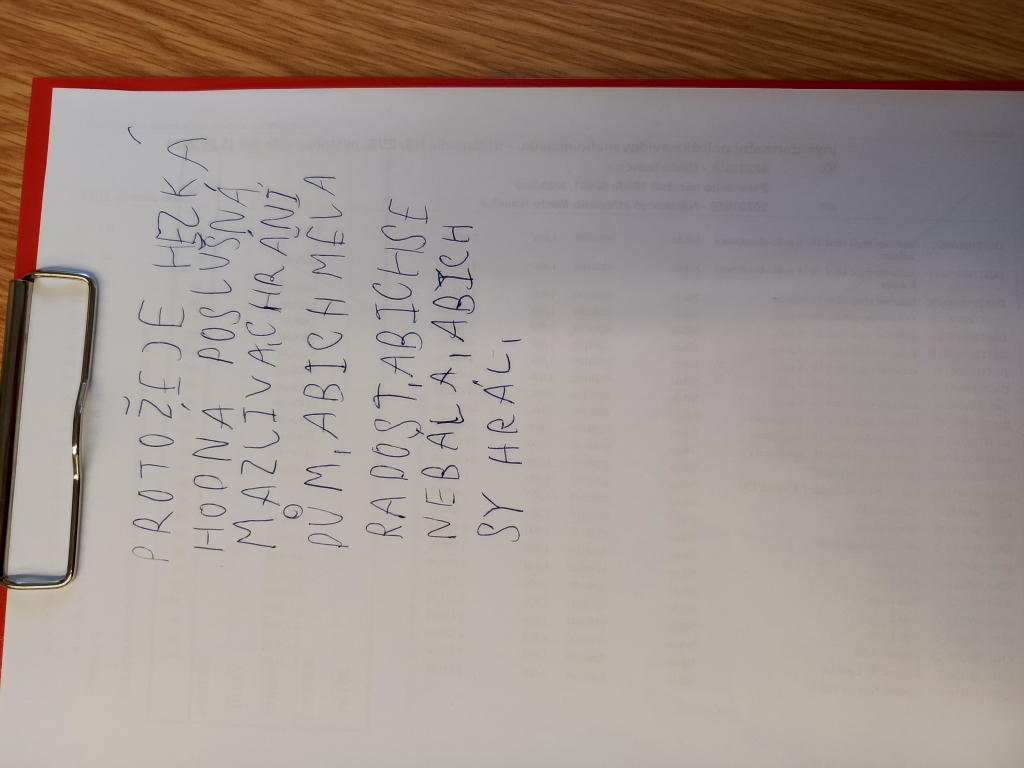 PROTOŽE JE HEZKÁ
HODNA POSLUŠNÁ
MAZLIVA, CHRANÍ
DŮM, ABICH MĚLA
RADOST, ABICH SE
NEBALA, ABICH
SY HRÁL,